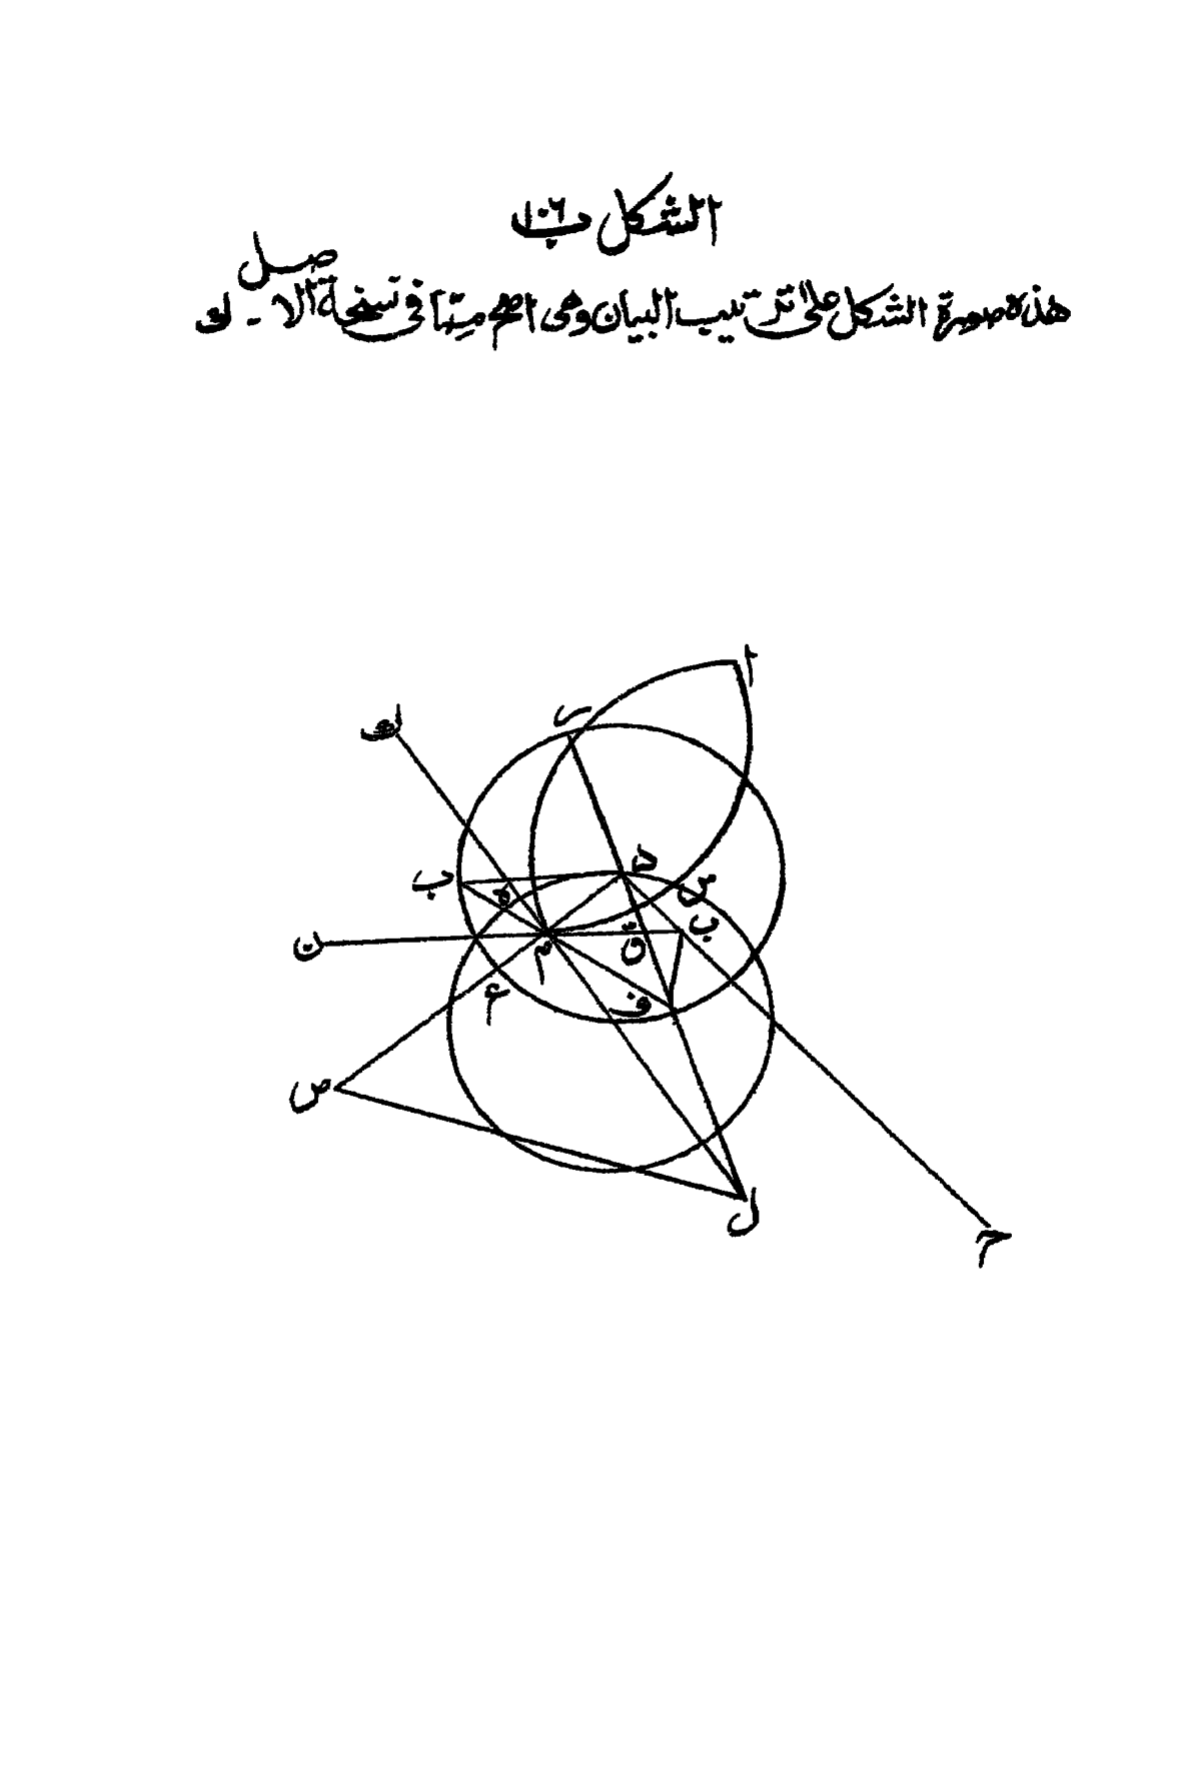 الشكل ١٠٦ب
هذه صورة الشكل على ترتيب البيان وهى اصح مما فى نسخة الاصل - ك
ا
ر
ك
ب
ه
د
س
ب
ن
م
ق
ع
ف
ص
ل
ح